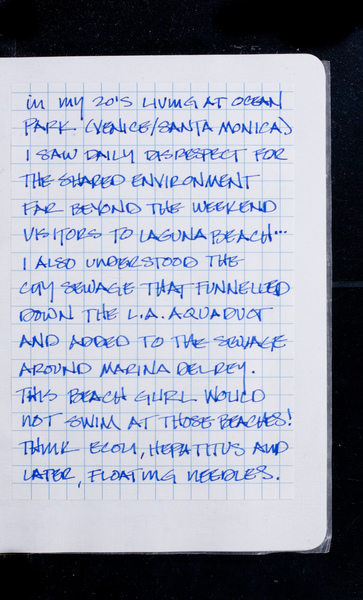 in my 20's LIVING AT OCEAN
PARK (VENICE/SANTA MONICA)
I SAW DAILY DISRESPECT FOR
THE SHARED ENVIRONMENT
FAR BEYOND THE WEEKEND
VISITORS TO LAGUNA BEACH...
I ALSO UNDERSTOOD THE
CITY SEWAGE THAT FUNNELLED
DOWN THE L.A. AQUADUCT
AND ADDED TO THE SEWAGE
AROUND MARINA DEL REY.
THIS BEACH GURL WOULD
NOT SWIM AT THOSE BEACHES!
THINK ECOLI, HEPATITUS AND
LATER, FLOATING NEEDLES.